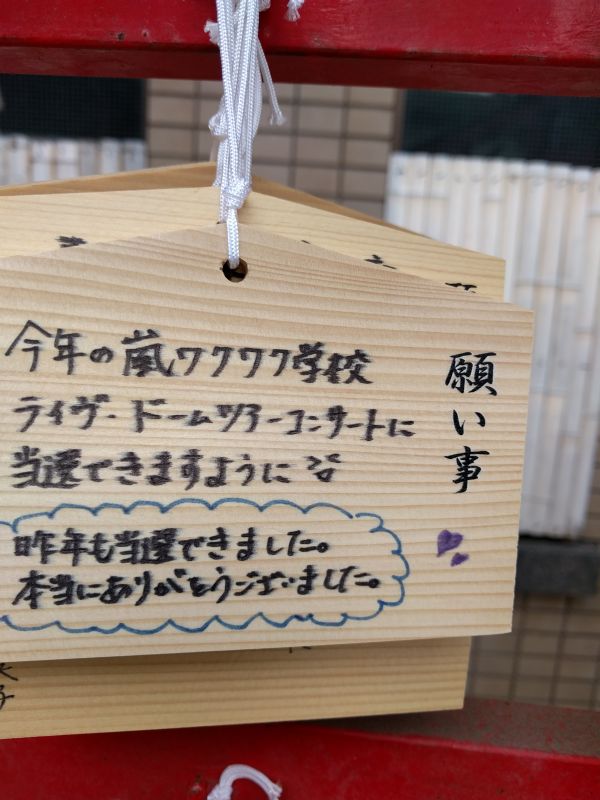 願い事
今年の嵐ワクワク学校
ライヴ・ドームツアーコンサートに
当選できますように
昨年も当選できました。
本当にありがとうございました。